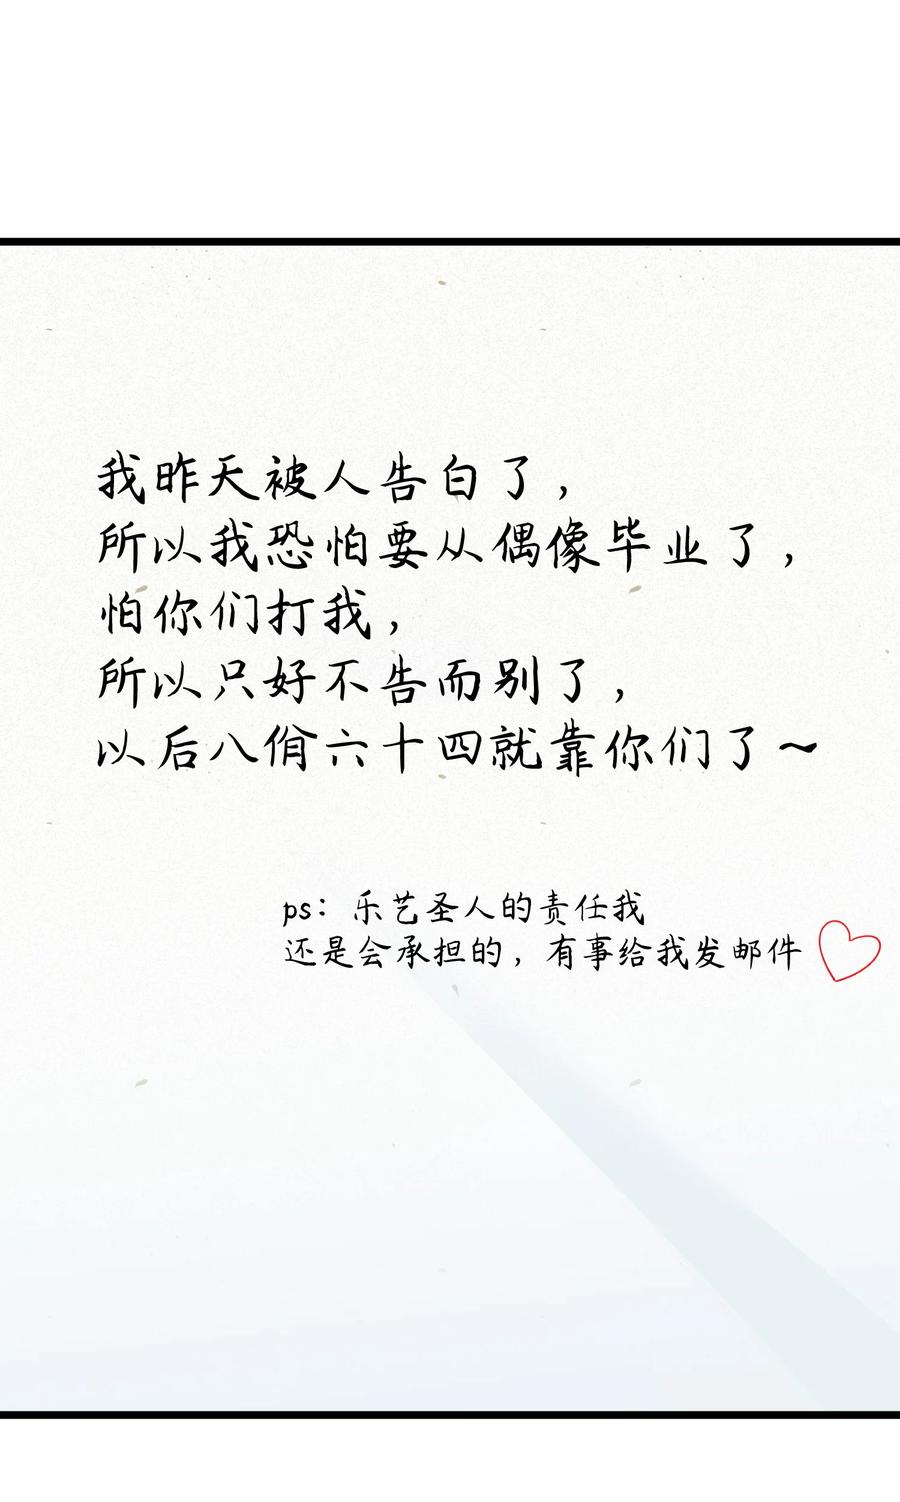 我昨天被人告白了，
所以我恐怕要从偶像毕业了，
怕你们打我，
所以只好不告而别了，
以后八佾六十四就靠你们了～
ps：乐艺圣人的责任我
还是会承担的，有事给我发邮件